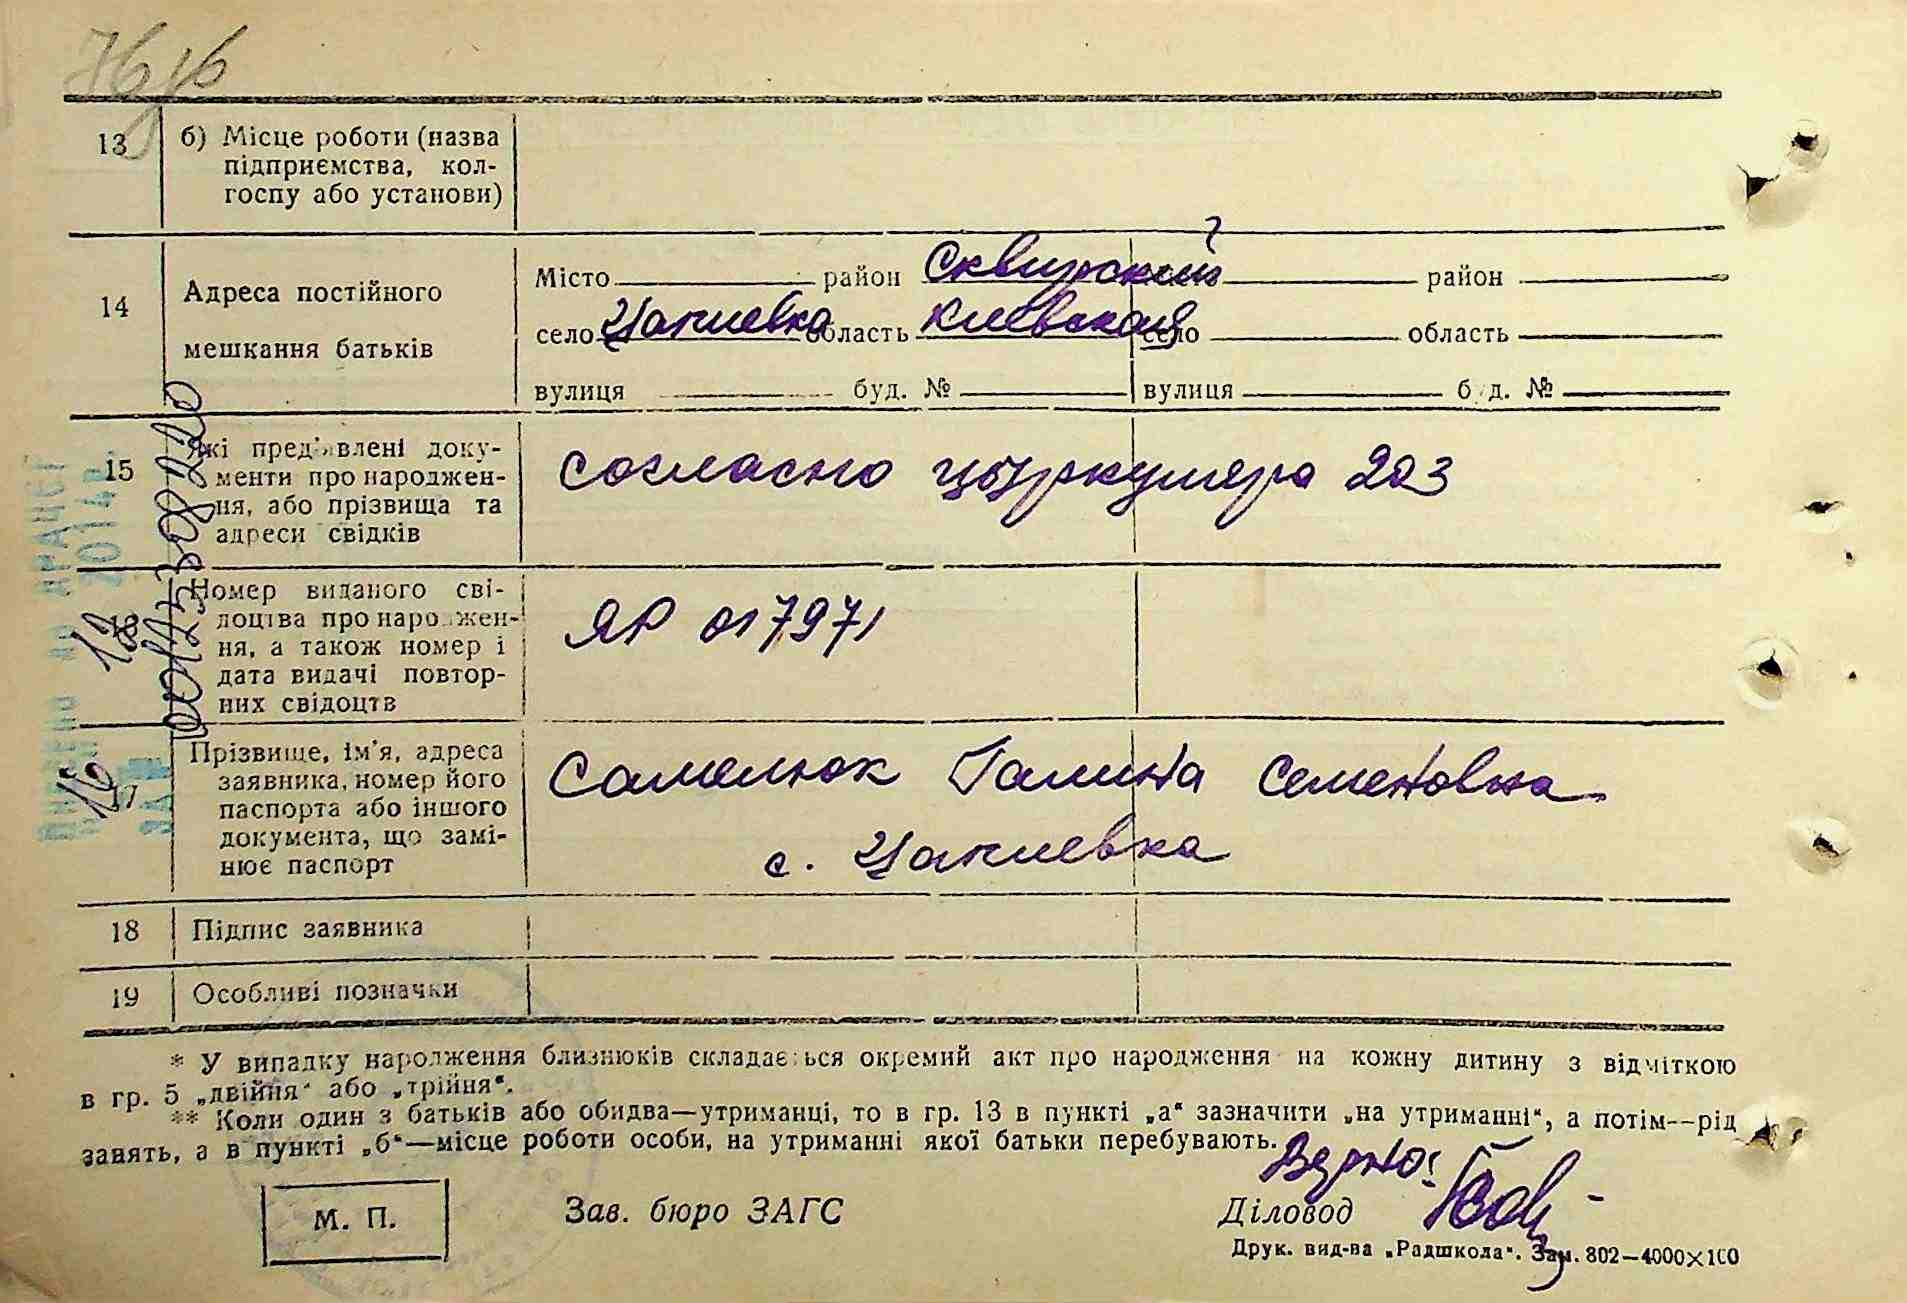 13 б) Місце роботи (назва
підприємства, кол-
госпу або установи)
14 Адреса постійного
мешкання батьків
Місто район Сквирский район
село Цапиевка область Киевская село область
вулиця буд. № вулиця буд. №
15 Які пред'явлені доку-
менти про народжен-
ня, або прізвища та
адреси свідків
согласно цыркуляра 203
Номер виданого сві-
доцтва про народжен-
ня, а також номер і
дата видачі повтор-
них свідоцтв
ЯР 017971
17 Прізвище, ім'я, адреса
заявника, номер його
паспорта або іншого
документа, що замі-
нює паспорт
Самелюк Галина Семеновна
с. Цапиевка
18 Підпис заявника
19 Особливі позначки
* У випадку народження близнюків складається окремий акт про народження на кожну дитину з відміткою
в гр. 5 „двійня“ або „трійня“.
** Коли один з батьків або обидва—утриманці, то в гр. 13 в пункті „а“ зазначити „на утриманні“, а потім—рід
занять, а в пункті „б“—місце роботи особи, на утриманні якої батьки перебувають.
Верно:
М. П. Зав. бюро ЗАГС Діловод
Друк. вид-ва „Радшкола“. Зам. 802—4000×100